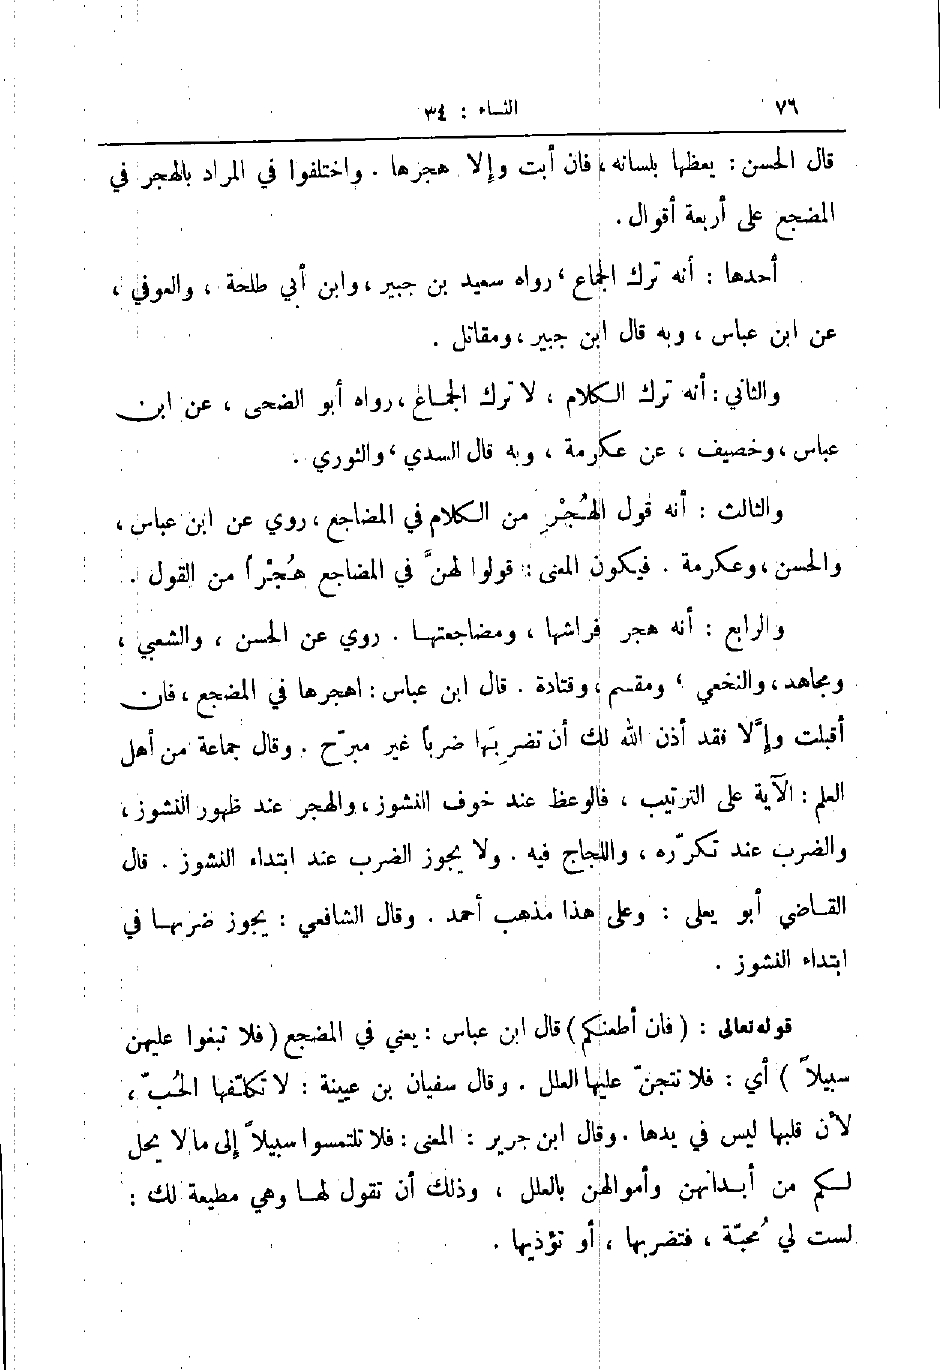 ٧٦ النساء : ٣٤
قال الحسن : يعظها بلسانه ، فان أبت وإلا هجرها . واختلفوا في المراد بالهجر في
المضجع على أربعة أقوال .
أحدها : أنه ترك الجماع ، رواه سعيد بن جبير ، وابن أبي طلحة ، والعوفي ،
عن ابن عباس ، وبه قال ابن جبير ، ومقاتل .
والثاني : أنه ترك الكلام ، لا ترك الجماع ، رواه أبو الضحى ، عن ابن
عباس ، وخصيف ، عن عكرمة ، وبه قال السدي ، والثوري .
والثالث : أنه قول الهُجْرِ من الكلام في المضاجع ، روي عن ابن عباس ،
والحسن ، وعكرمة . فيكون المعنى : قولوا لهنَّ في المضاجع هُجْراً من القول .
والرابع : أنه هجر فراشها ، ومضاجعتها . روي عن الحسن ، والشعبي ،
ومجاهد ، والنخعي ، ومقسم ، وقتادة . قال ابن عباس : اهجرها في المضجع ، فان
أقبلت وإلَّا فقد أذن الله لك أن تضربَها ضرباً غير مبرّح . وقال جماعة من أهل
العلم : الآية على الترتيب ، فالوعظ عند خوف النشوز ، والهجر عند ظهور النشوز ،
والضرب عند تكرّره ، واللجاج فيه . ولا يجوز الضرب عند ابتداء النشوز . قال
القاضي أبو يعلى : وعلى هذا مذهب أحمد . وقال الشافعي : يجوز ضربها في
ابتداء النشوز .
قوله تعالى : ( فان أطعنكم ) قال ابن عباس : يعني في المضجع ( فلا تبغوا عليهن
سبيلاً ) أي : فلا تتجنّ عليها العلل . وقال سفيان بن عيينة : لا تكلّفها الحُبّ ،
لأن قلبها ليس في يدها . وقال ابن جرير : المعنى : فلا تلتمسوا سبيلاً إلى ما لا يحل
لكم من أبدانهن وأموالهن بالعلل ، وذلك أن تقول لها وهي مطيعة لك :
لست لي مُحبّة ، فتضربها ، أو تؤذيها .